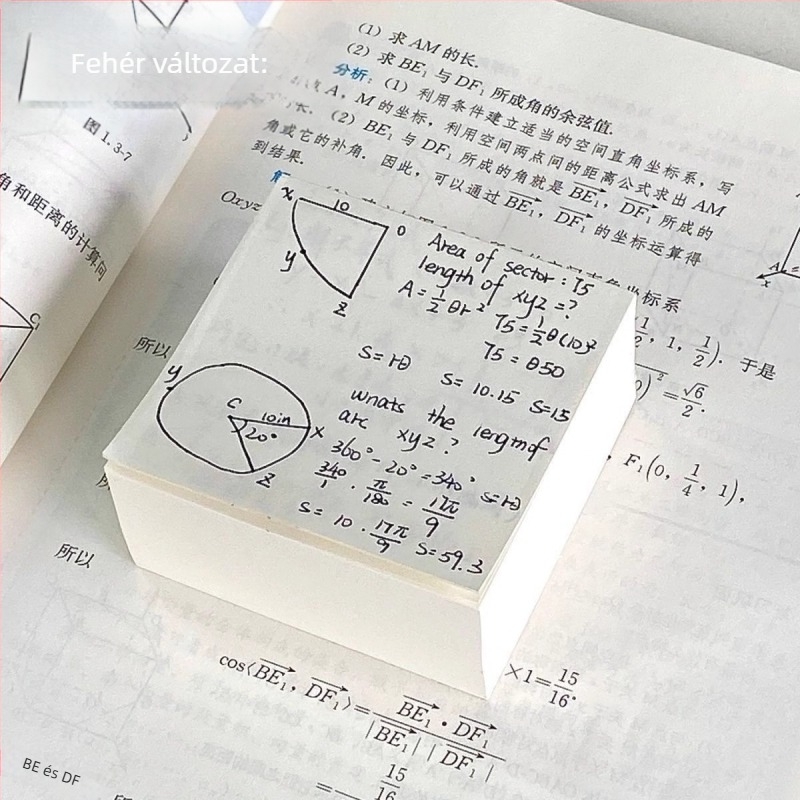 Fehér változat:
图 1.3-7
角和距离的计算问
C₁
(1) 求 AM 的长.
(2) 求 BE₁ 与 DF₁ 所成角的余弦值.
分析: (1) 利用条件建立适当的空间直角坐标系, 写
A, M 的坐标, 利用空间两点间的距离公式求出 AM
长. (2) BE₁ 与 DF₁ 所成的角就是 BE₁, DF₁ 所成的
角或它的补角. 因此, 可以通过 BE₁, DF₁ 的坐标运算得
到结果.
Oxyz
坐标系
1/2, 1, 1/2). 于是
² = √6/2.
所以
, F₁(0, 1/4, 1),
x 10 O
y
z
Area of sector: 75
length of xyz =?
A = 1/2 θr²
75 = 1/2 θ(10)²
75 = θ50
S=rθ S = 10.15 S=15
y
C 10in
20° x
z
wnats the length of
arc xyz?
360° - 20° = 340° S=rθ
340/1 · π/180 = 17π/9
S = 10 · 17π/9 S=59.3
所以
×1=15/16.
cos⟨BE₁, DF₁⟩= BE₁ · DF₁ / |BE₁| |DF₁|
= 15/16
BE és DF